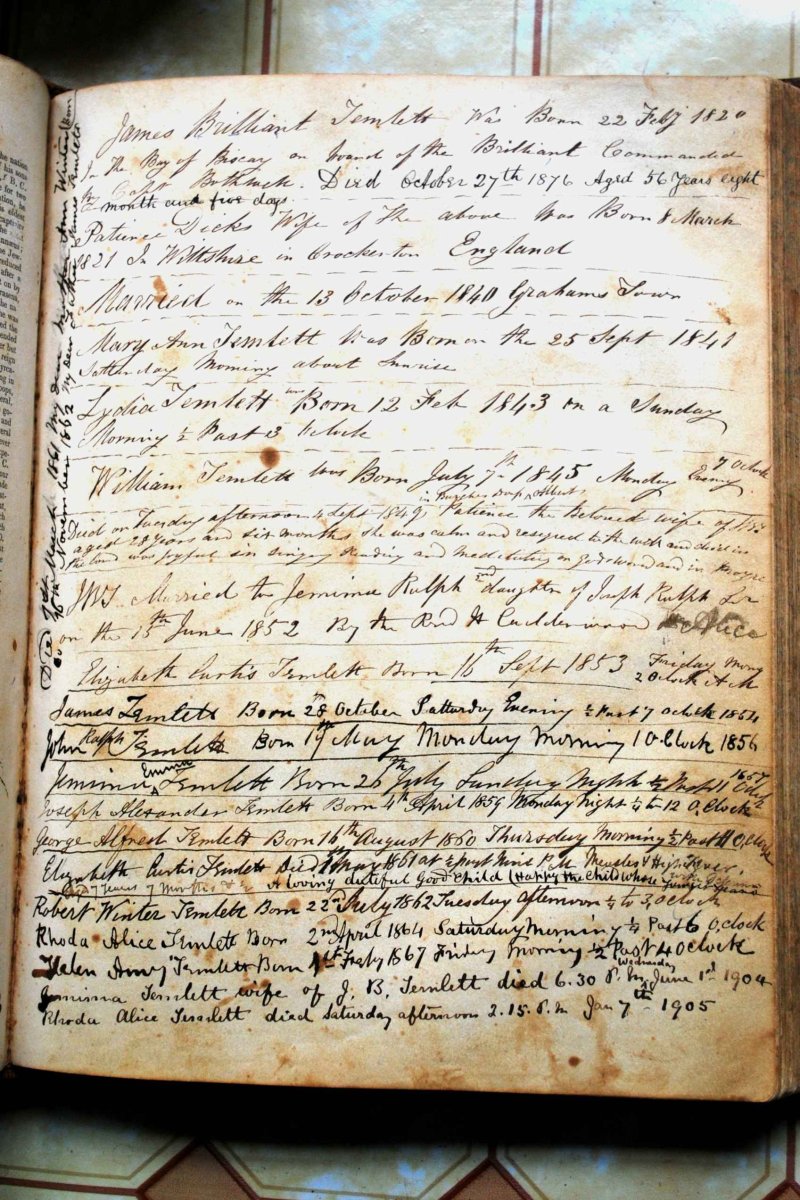 James Brilliant Temlett Was Born 22 Feby 1820
In the Bay of Biscay on board of the Brilliant Commanded
by Capt Died October 27th 1876 Aged 56 Years eight
month and five days.
Patience Dicks Wife of the above Was Born 8 March
1821 In Wiltshire in Crockerton England
Married on the 13 October 1840 Grahams Town
Mary Ann Temlett Was Born on the 25 Sept 1841
Satterday Morning about Sunrise
Lydia Temlett was Born 12 Feb 1843 on a Sunday
Morning ½ Past 3 Oclock
William Temlett was Born July 7th 1845 Monday Evening 7 Oclock
in Albert
Died on Tuesday afternoon 4 Sept 1849 Patience the Beloved wife of
aged 28 Years and six months she was calm and resigned to the will and died in
the Lord was joyful in singing Reading and meditating on Gods word and in prayer
Married to Jemima Ralph 2nd daughter of Joseph Ralph Snr
on the 15th June 1852 By the Revd H Calderwood Alice
Elizabeth Curtis Temlett Born 16th Sept 1853 Friday Morng
2 Oclock A M
James Temlett Born 28 October Satturday Evening ½ Past 7 Oclock 1854
John Ralph Temlett Born 19th May Monday Morning 1 O.Clock 1856
Jemima Emma Temlett Born 26th July Sunday Night ½ Past 11 Oclock 1857
Joseph Alexander Temlett Born 4th April 1859 Monday Night ¼ to 12 O,Clock
George Alfred Temlett Born 16th August 1860 Thursday Morning ½ Past 11 O,Clock
Elizabeth Curtis Temlett Died May 1861 at ½ past Nine P.M Measles & High Fever,
Aged 7 Years 7 Months & ½ A loving dutiful Good Child (Happy the Child whose Years
Robert Winter Temlett Born 22nd July 1862 Tuesday afternoon ¼ to 3, O clock
Rhoda Alice Temlett Born 2nd April 1864 Saturday Morning ¼ Past 6 O,clock
Helen Amy Temlett Born 1st Feby 1867 Friday Morning ½ Past 4 Oclock
Jemima Temlett wife of J. B. Temlett died 6.30 P.M Wednesday June 1st 1904
Rhoda Alice Temlett died Saturday afternoon 2.15. P.M Jan 7th 1905
Died March 1861 My dear Mother Ann
November 1862 My dear Father James Temlett